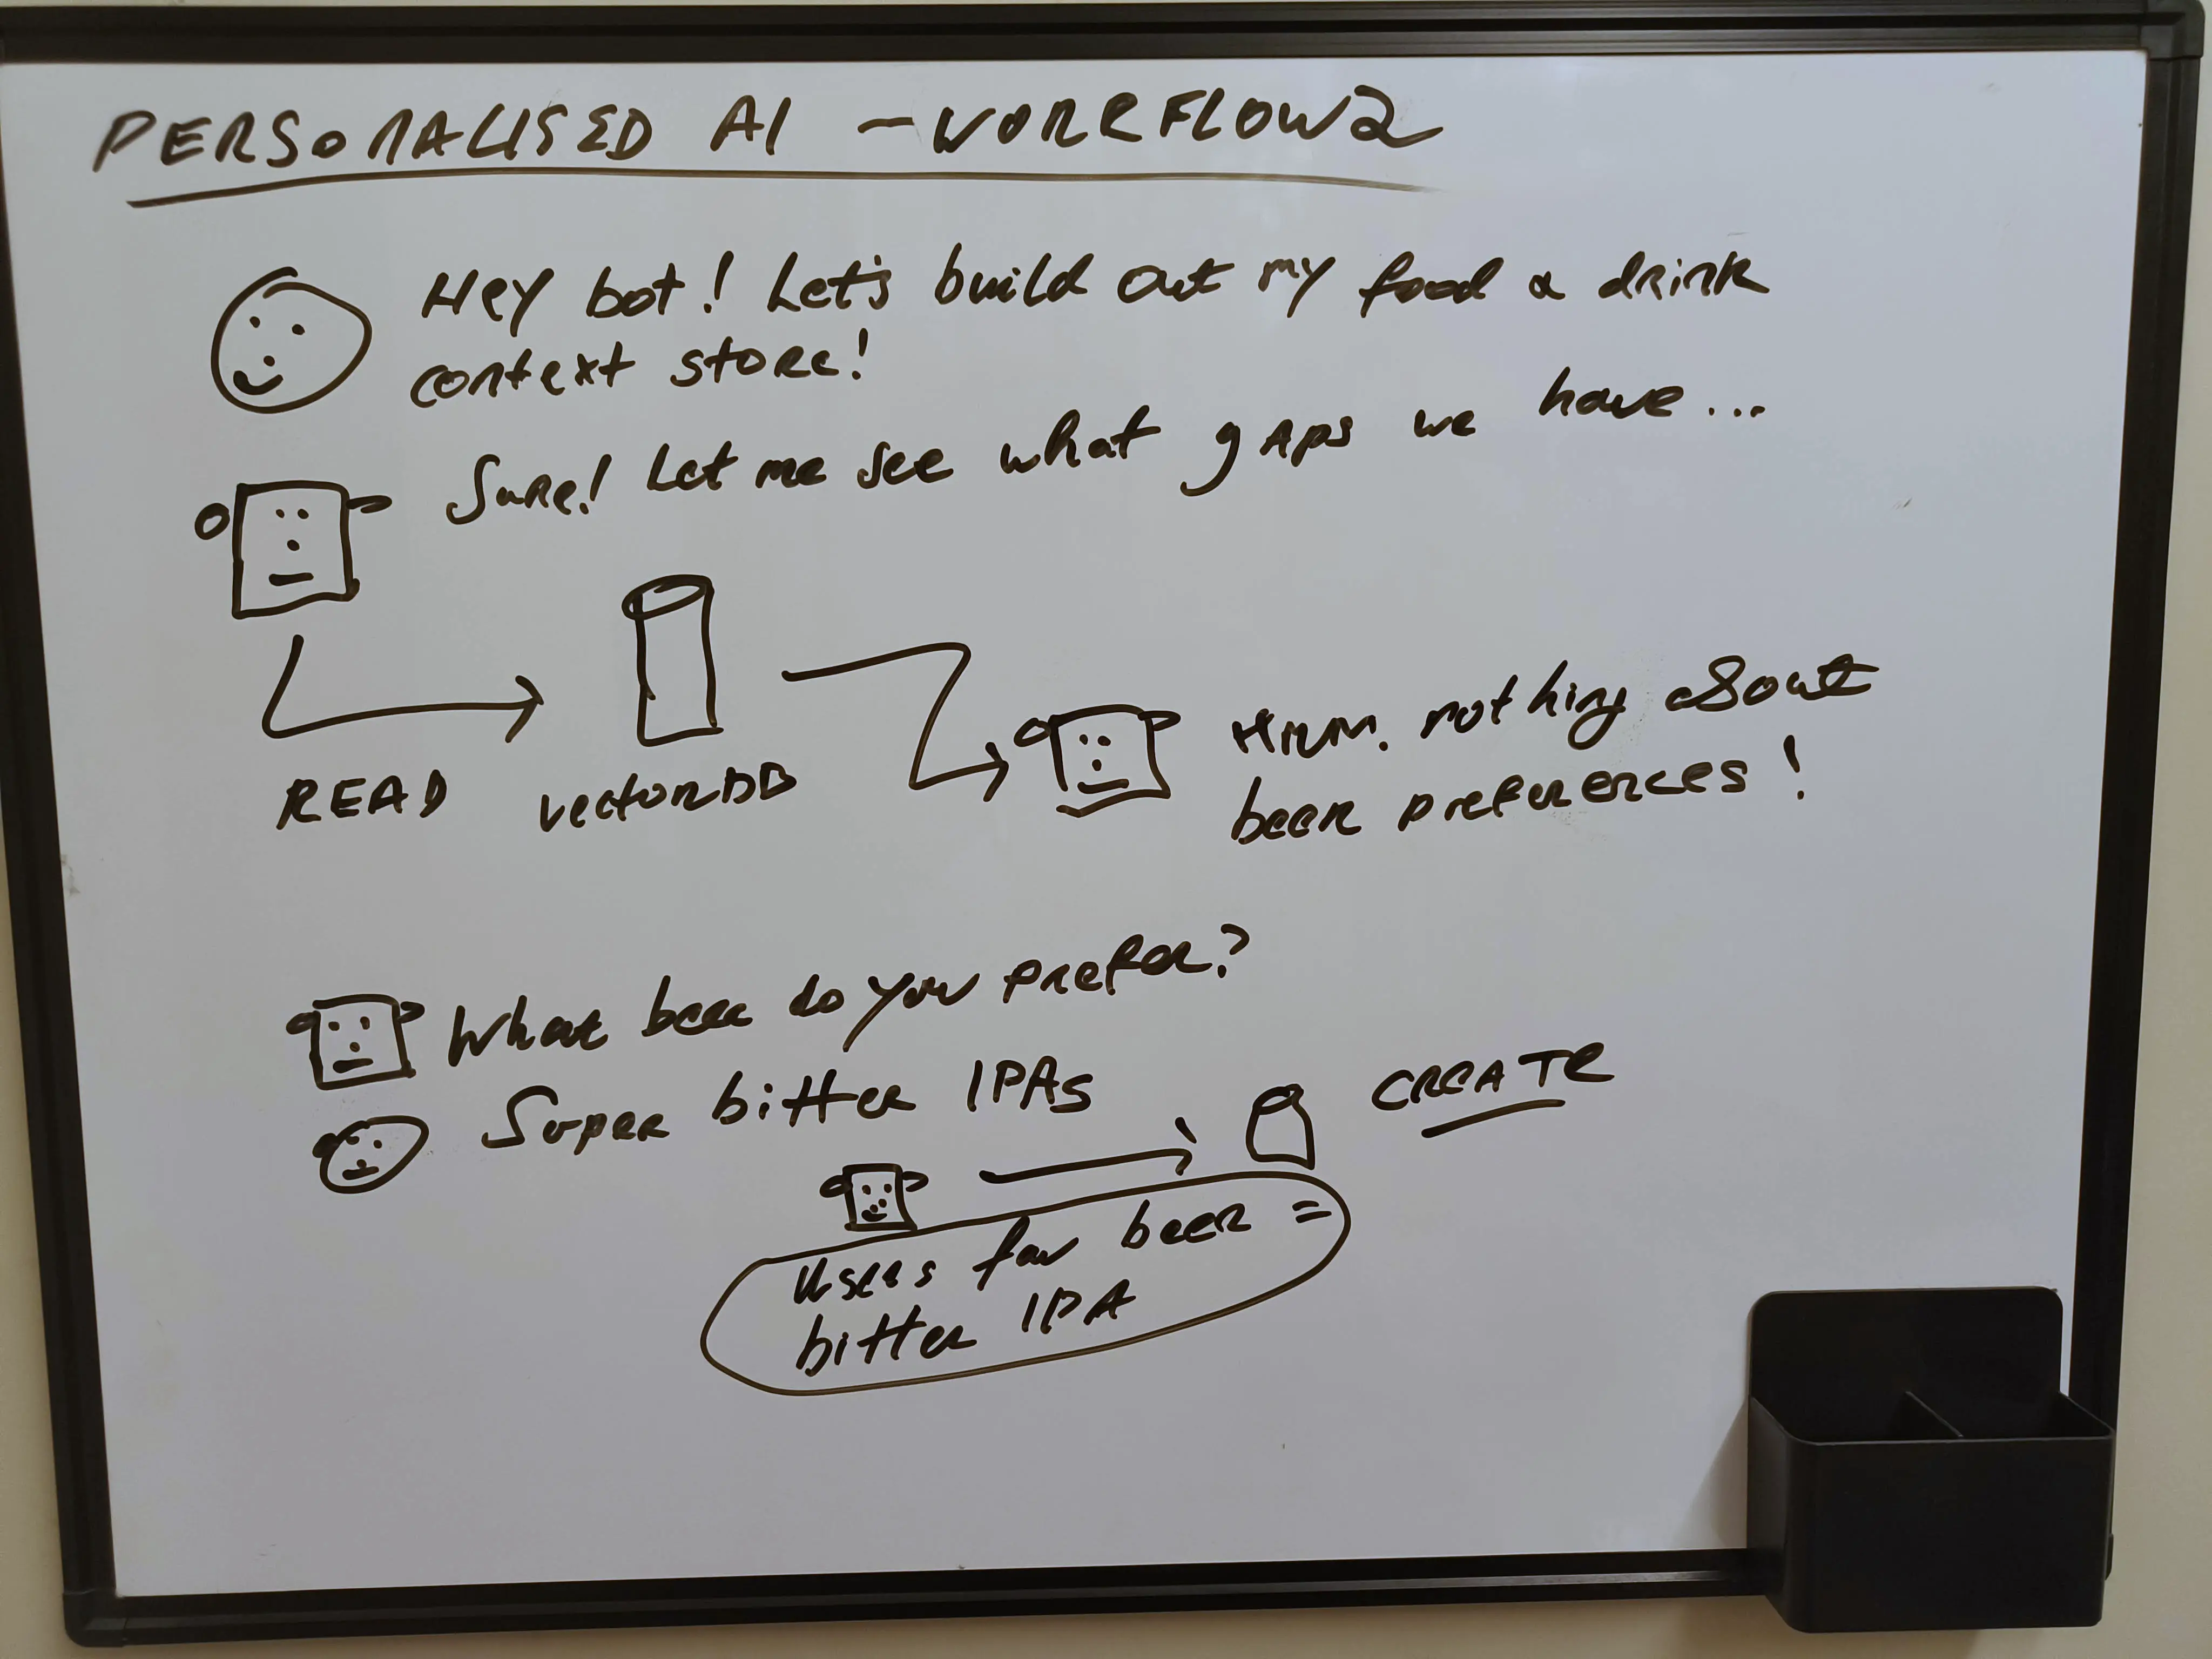 PERSONALISED AI - WORKFLOW 2
Hey bot! Let's build out my food & drink
context store!
Sure! Let me see what gaps we have...
Hmm. nothing about
beer preferences!
READ vectorDB
What beer do you prefer?
Super bitter IPAs
CREATE
Users fav beer =
bitter IPA